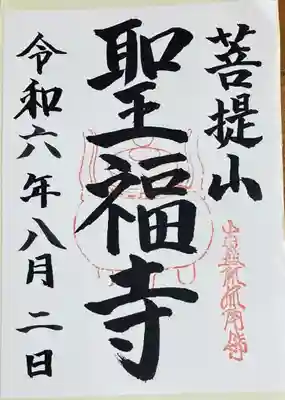 菩提山
聖福寺
令和六年八月二日